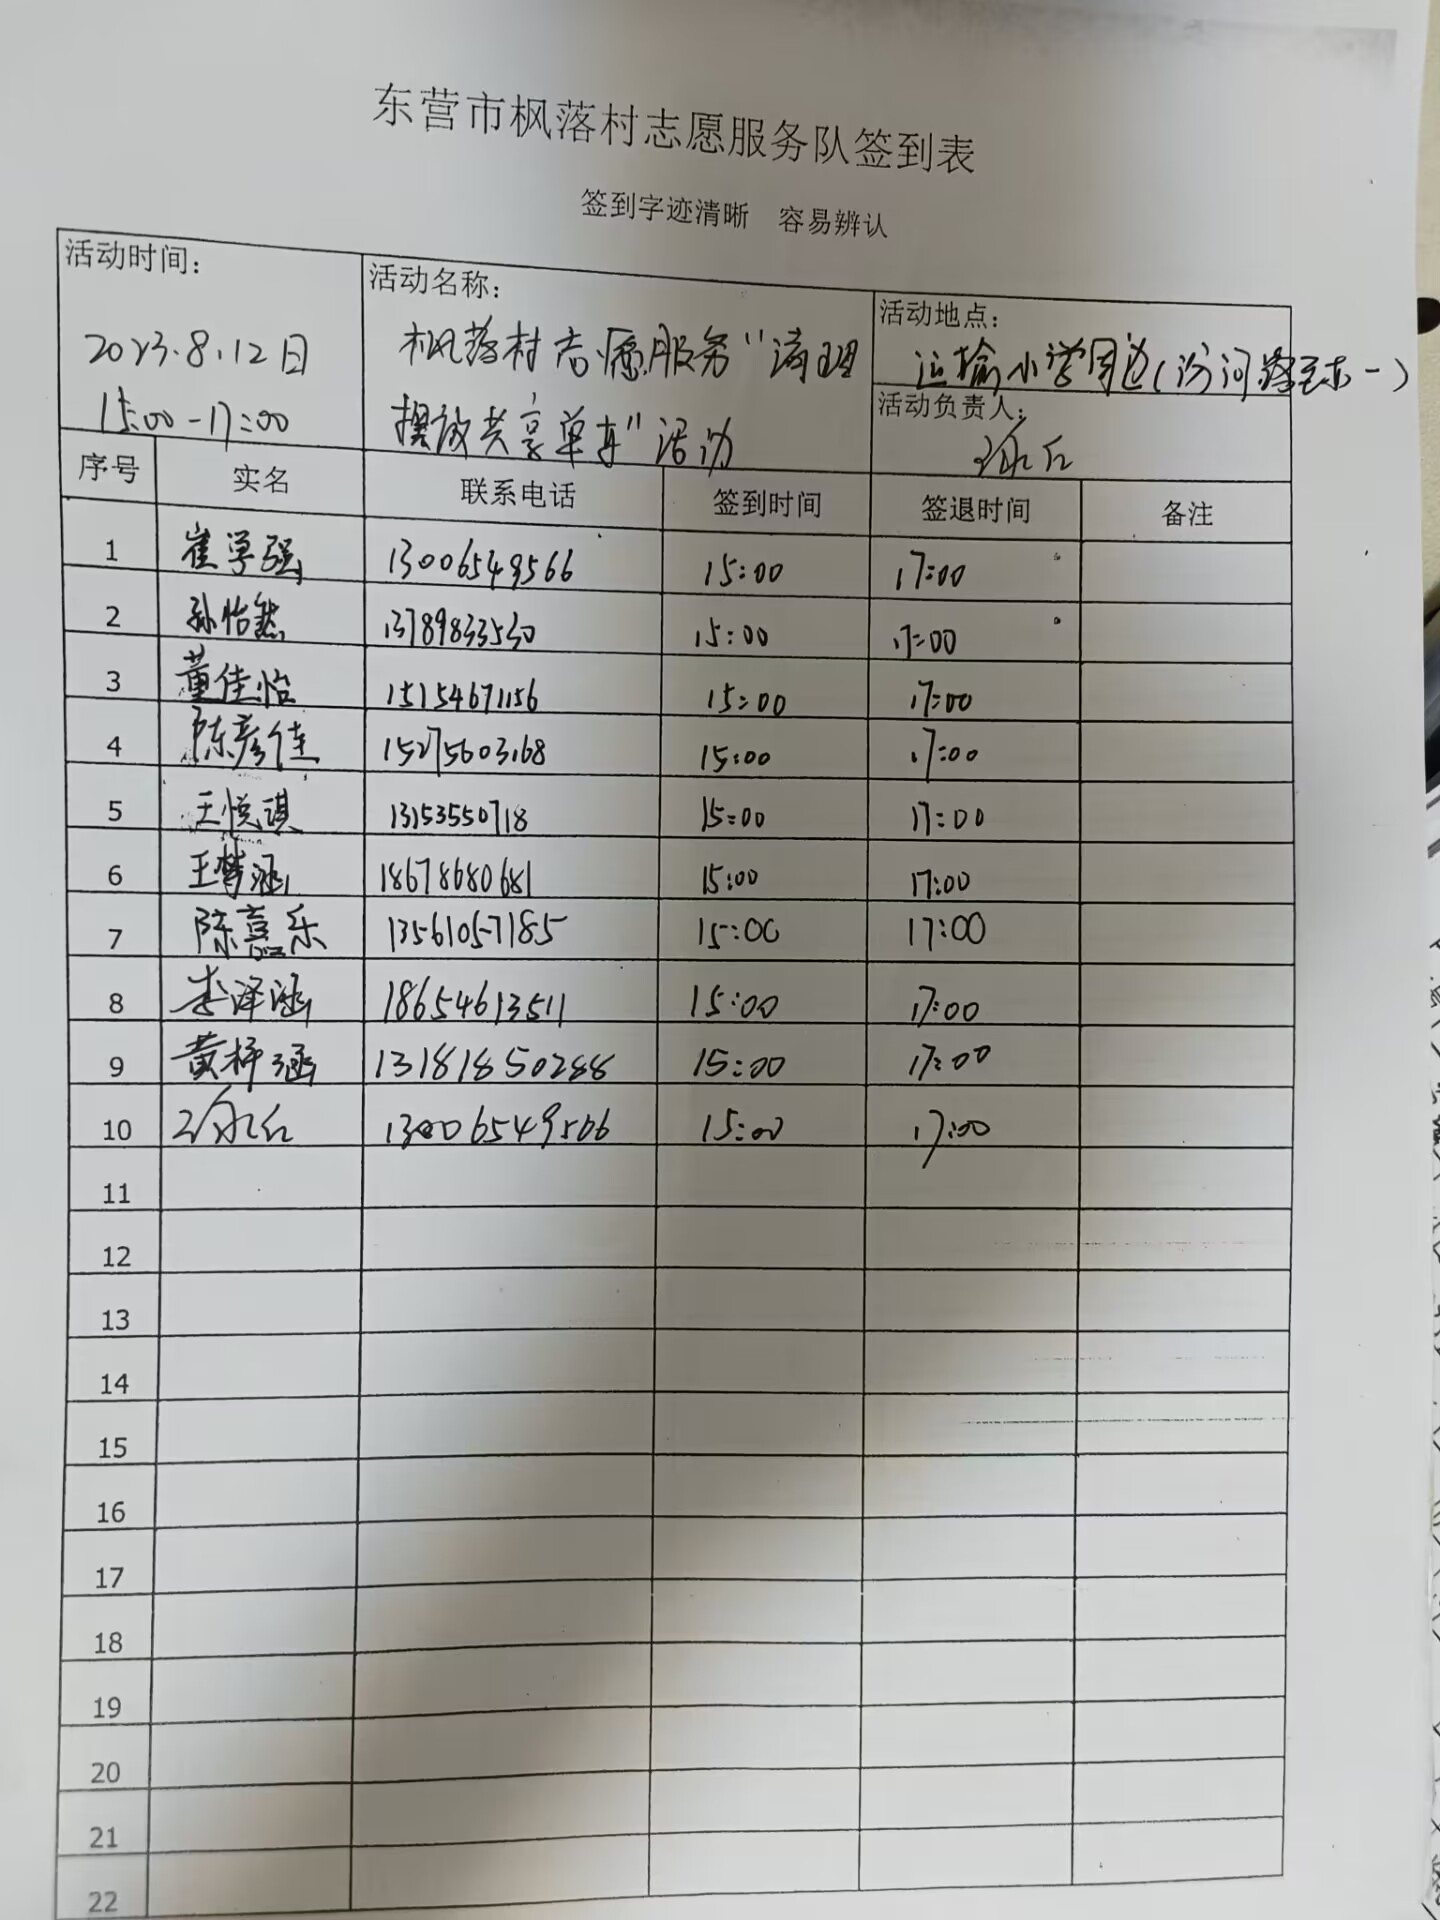 东营市枫落村志愿服务队签到表
签到字迹清晰 容易辨认
活动时间：
2023.8.12日
15:00-17:00
活动名称：
枫落村志愿服务“清理
摆放共享单车”活动
活动地点：
运输小学周边（汾河路至东一）
活动负责人：
序号 实名 联系电话 签到时间 签退时间 备注
1 崔学强 13006549566 15:00 17:00
2 孙怡然 13789833530 15:00 17:00
3 董佳怡 15154671156 15:00 17:00
4 陈彦佳 15275603168 15:00 17:00
5 王悦琪 13153550718 15:00 17:00
6 王梦涵 18678680681 15:00 17:00
7 陈嘉乐 13561057185 15:00 17:00
8 李泽涵 18654613511 15:00 17:00
9 黄梓涵 13181850288 15:00 17:00
10 13006549566 15:00 17:00
11
12
13
14
15
16
17
18
19
20
21
22